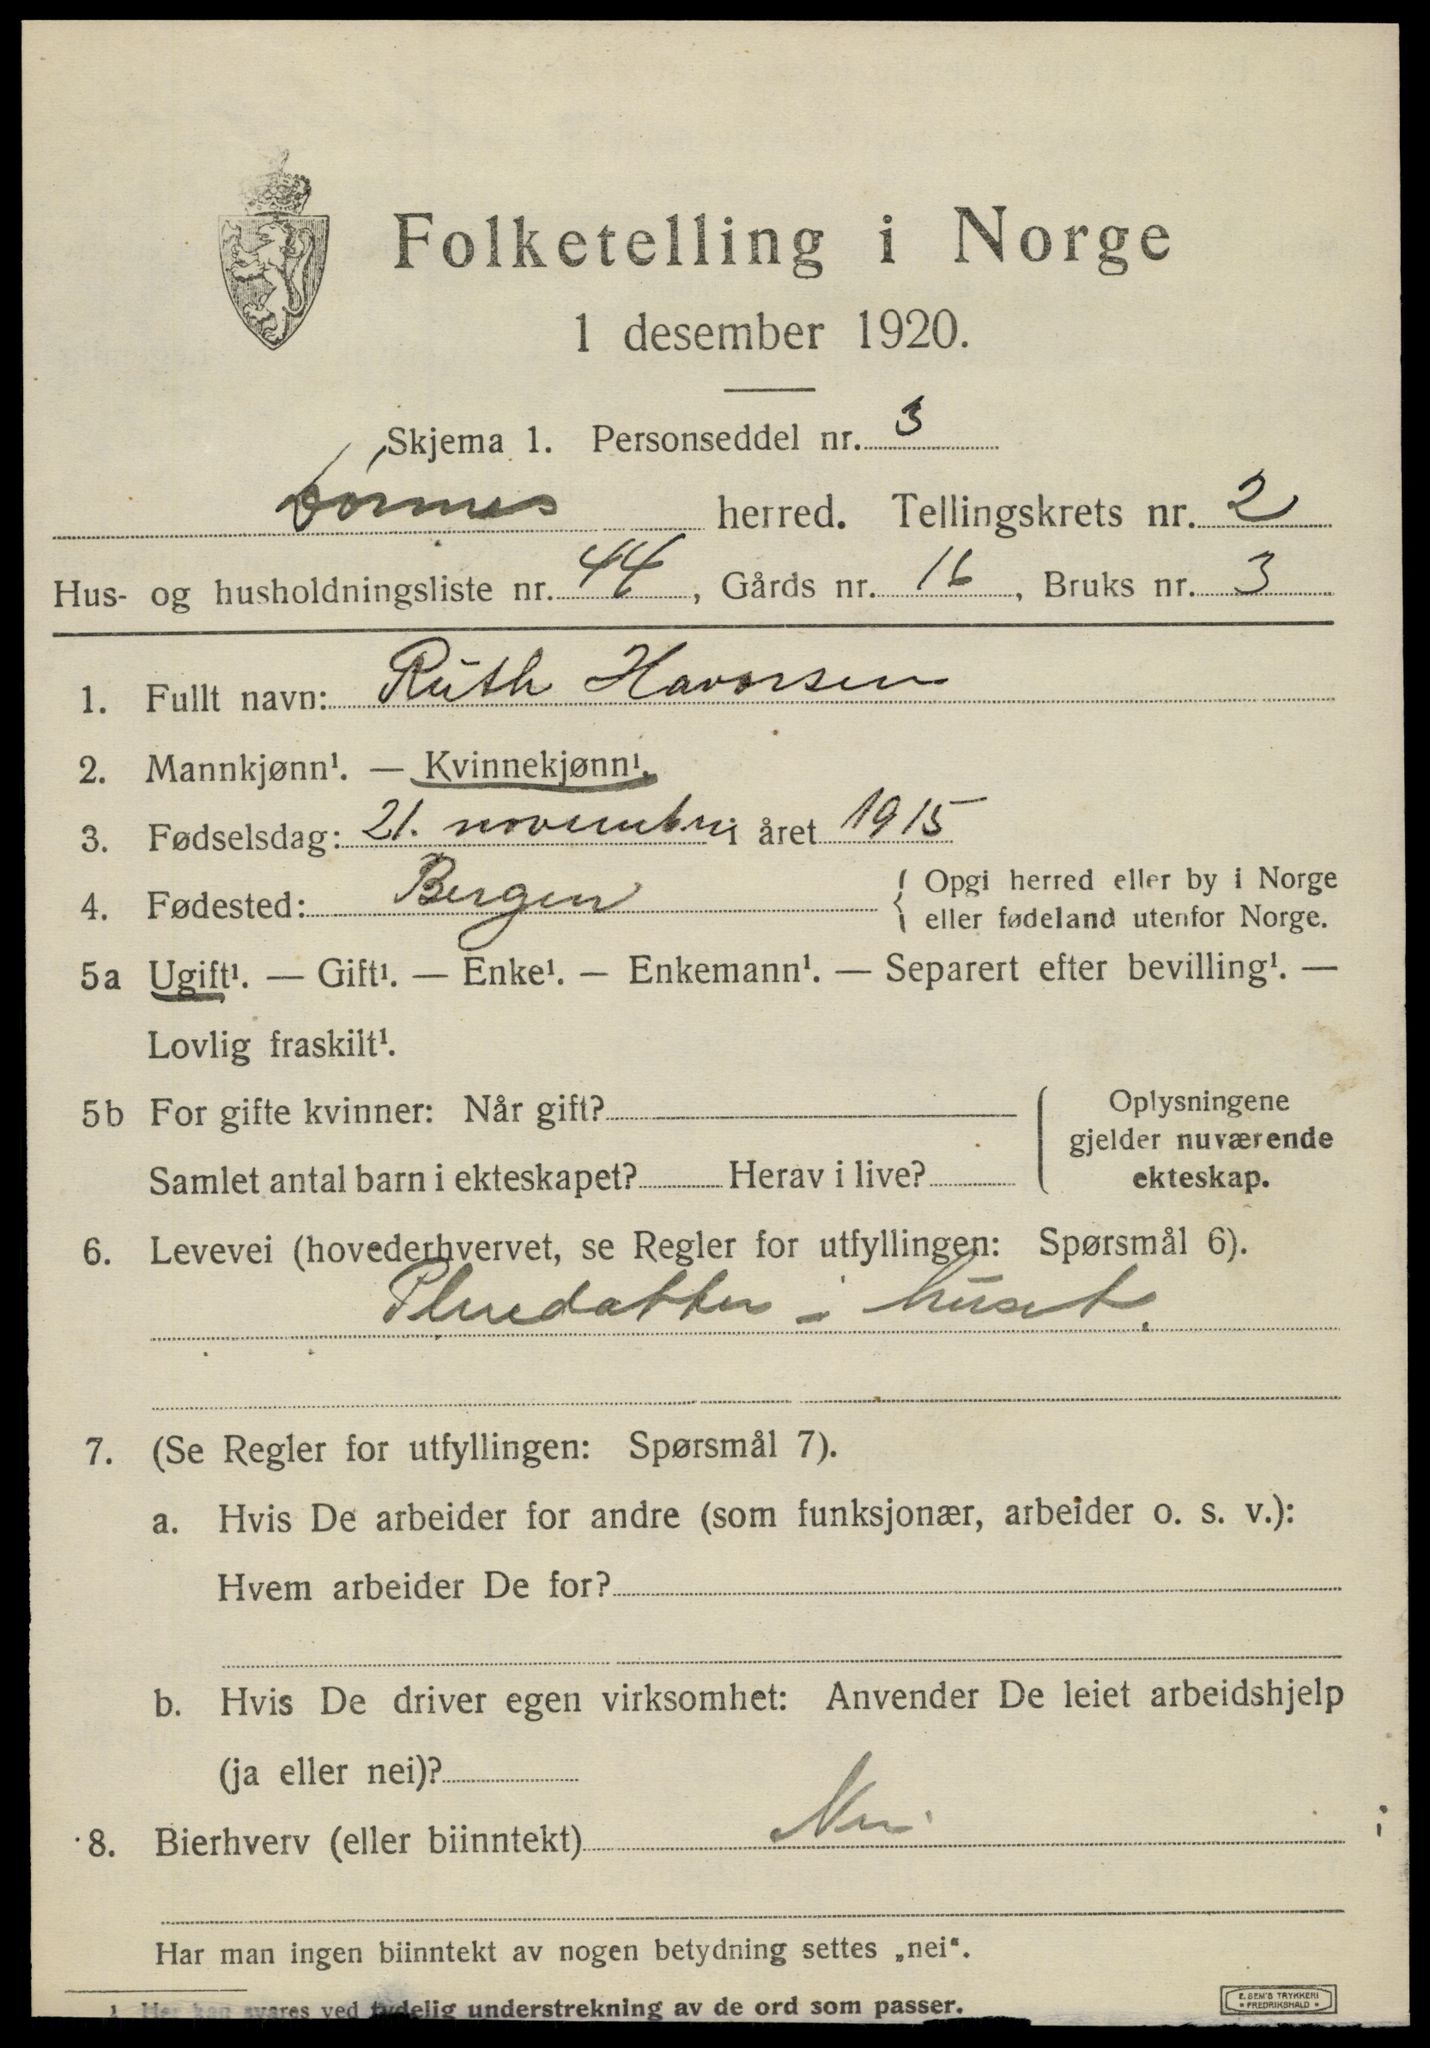 Folketelling i Norge
1 desember 1920.
Skjema 1. Personseddel nr. 3
herred. Tellingskrets nr. 2
Hus- og husholdningsliste nr. 44, Gårds nr. 16, Bruks nr. 3
1. Fullt navn: Ruth Havorsen
2. Mannkjønn¹. — Kvinnekjønn¹.
3. Fødselsdag: 21. november i året 1915
4. Fødested: Bergen { Opgi herred eller by i Norge
eller fødeland utenfor Norge.
5a Ugift¹. — Gift¹. — Enke¹. — Enkemann¹. — Separert efter bevilling¹. —
Lovlig fraskilt¹.
5b For gifte kvinner: Når gift?
Samlet antal barn i ekteskapet? Herav i live?
Oplysningene
gjelder nuværende
ekteskap.
6. Levevei (hovederhvervet, se Regler for utfyllingen: Spørsmål 6).
Pleiedatter i huset.
7. (Se Regler for utfyllingen: Spørsmål 7).
a. Hvis De arbeider for andre (som funksjonær, arbeider o. s. v.):
Hvem arbeider De for?
b. Hvis De driver egen virksomhet: Anvender De leiet arbeidshjelp
(ja eller nei)?
8. Bierhverv (eller biinntekt) Nei
Har man ingen biinntekt av nogen betydning settes „nei“.
1 Her kan svares ved tydelig understrekning av de ord som passer.
E. SEM'S TRYKKERI
FREDRIKSHALD